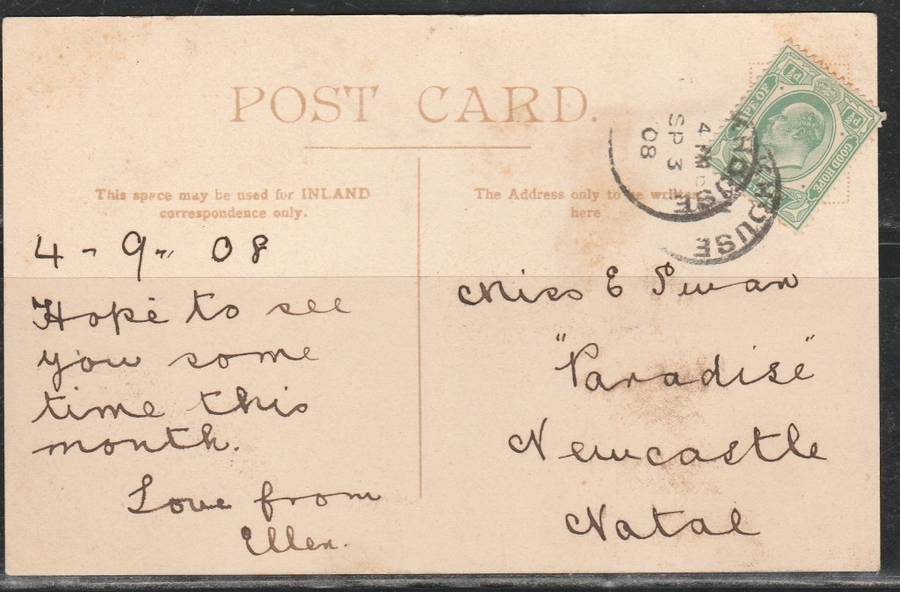 POST CARD.
This space may be used for INLAND
correspondence only.
4 - 9 - 08
Hope to see
you some
time this
month.
Love from
Ellen.
The Address only to be written
here
Miss E Swan
"Paradise"
Newcastle
Natal
CAPE OF
GOOD HOPE
½D
½D
4 PM
SP 3
08
OUSE
OUSE